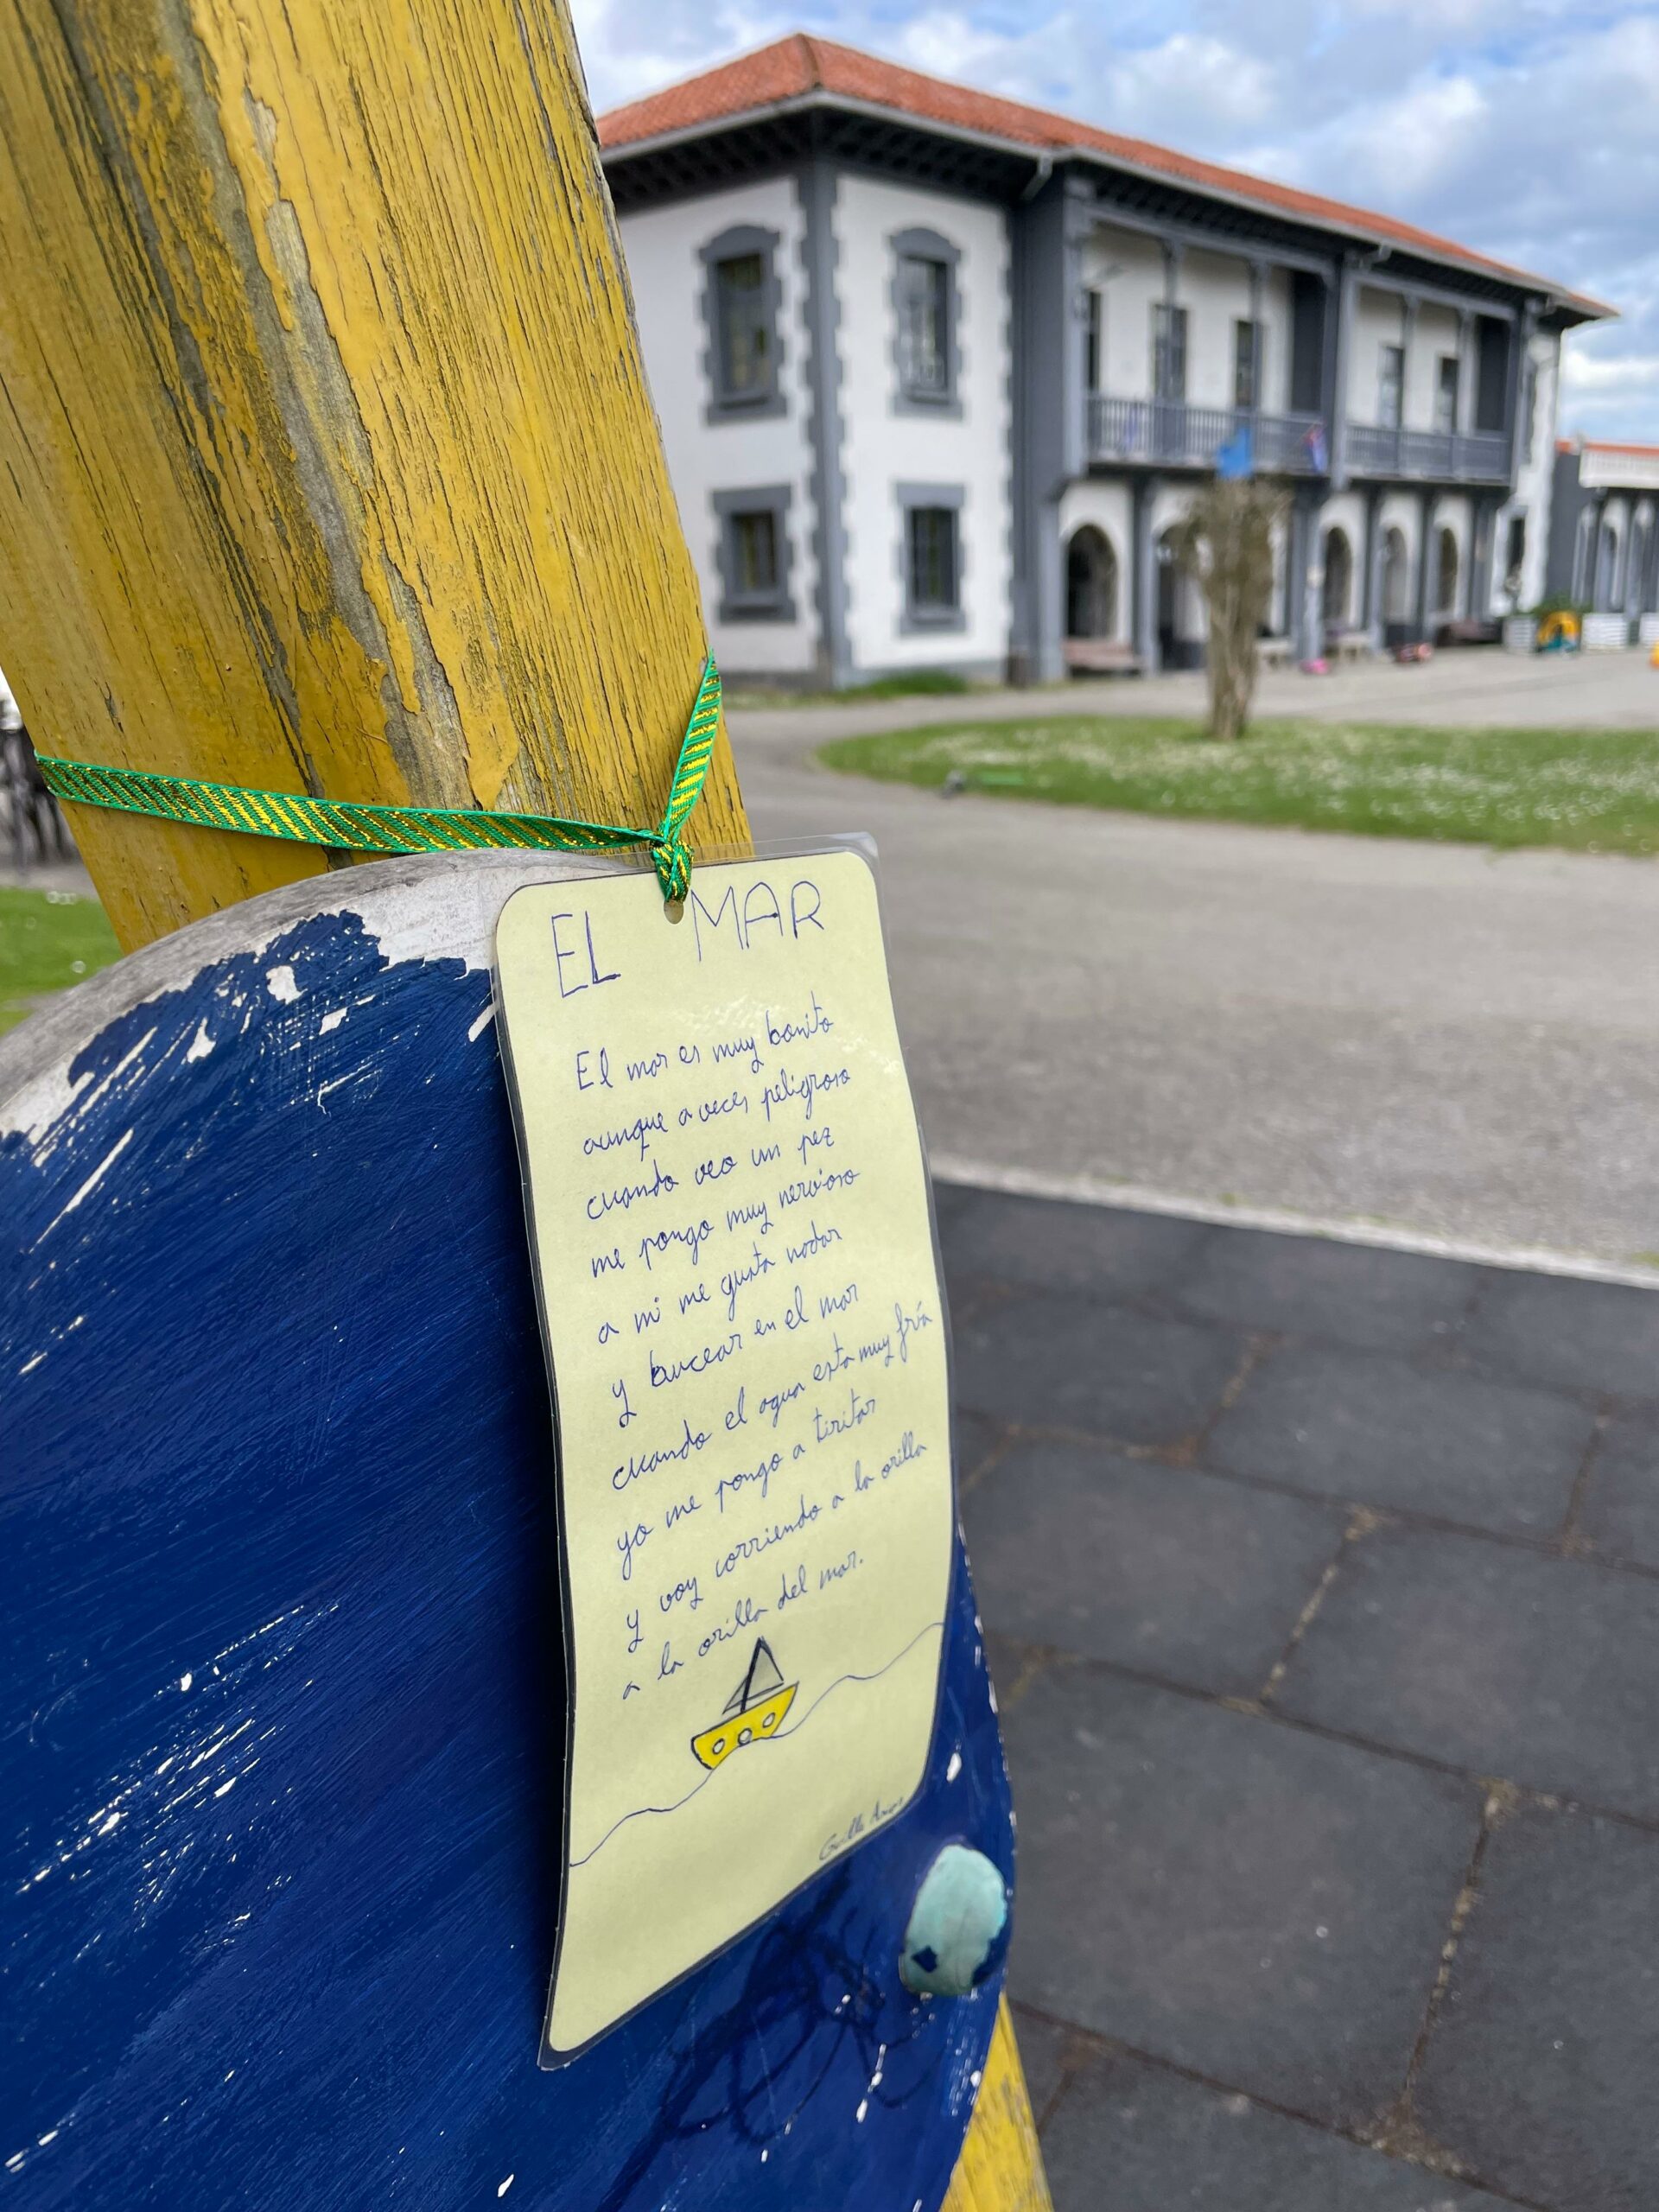 EL MAR
El mar es muy bonito
aunque a veces peligroso
cuando veo un pez
me pongo muy nervioso
a mi me gusta nadar
y bucear en el mar
cuando el agua esta muy fría
yo me pongo a tiritar
y voy corriendo a la orilla
a la orilla del mar.